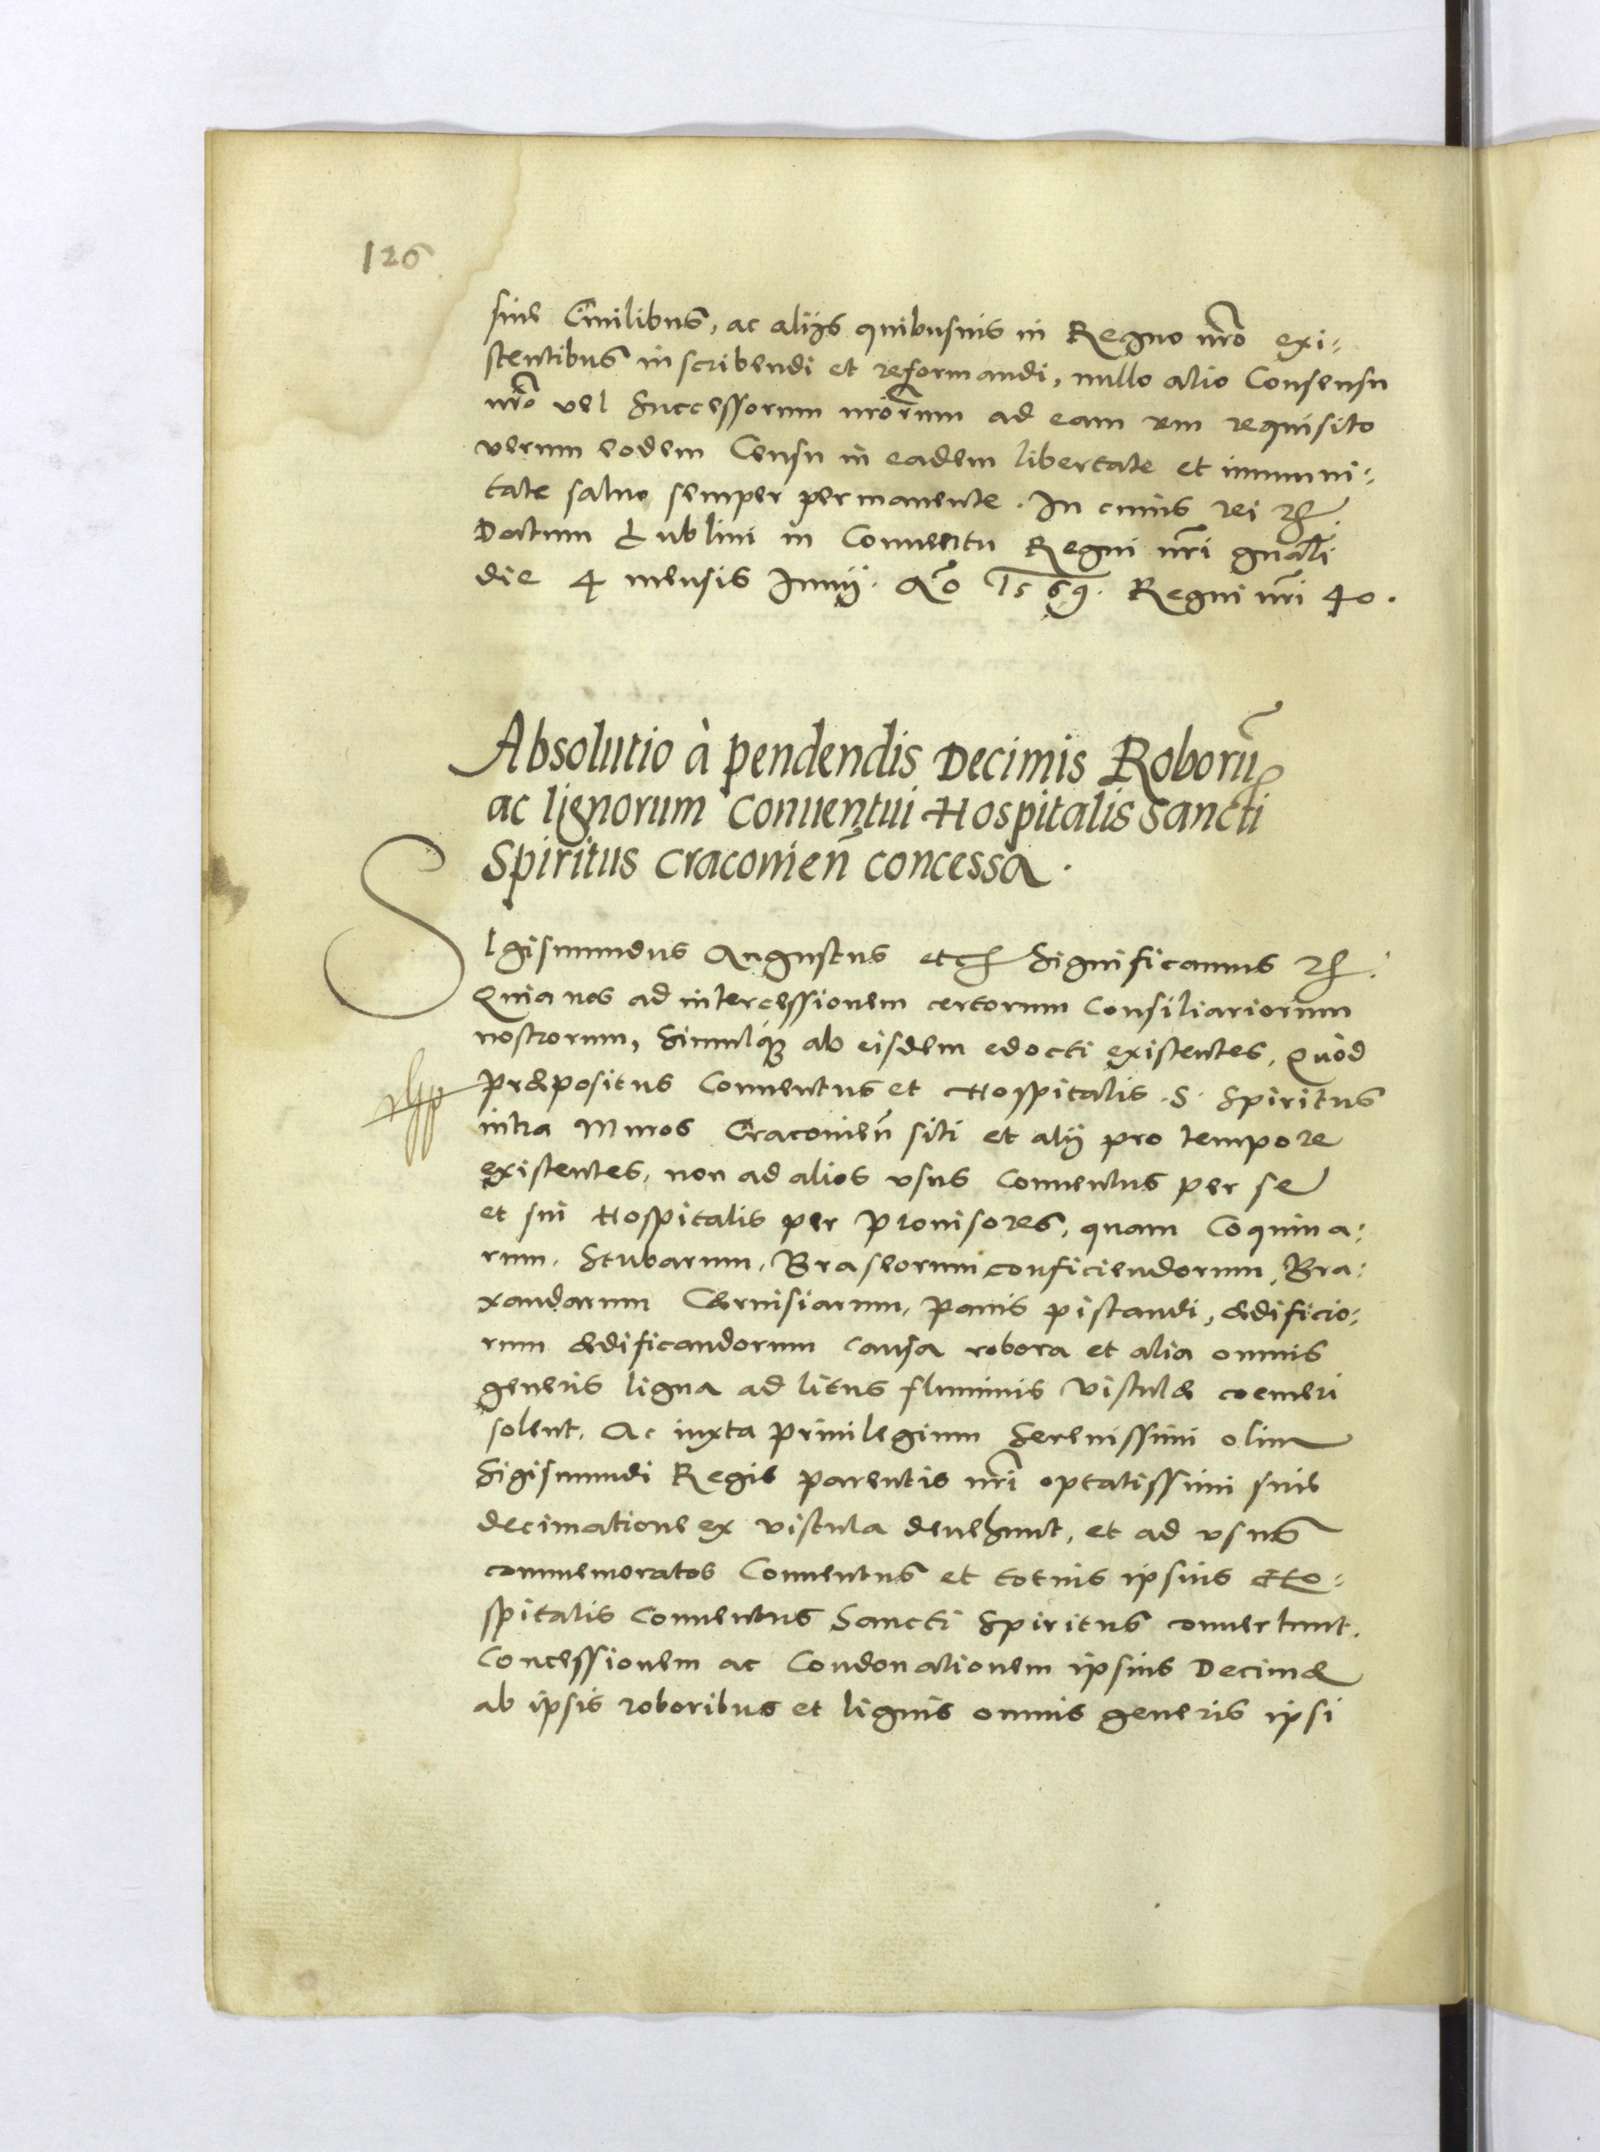 126
siue Ciuilibus, ac alijs quibusuis in Regno nr̃o exi=
stentibus inscribendi et reformandi, nullo alio Consensu
nr̃o vel Successorum nr̃orum ad eam rem requisito
verum eodem Censu in eadem libertate et immuni=
tate saluo semper permanente. In cuius rei etc̃.
Datum Lublini in Conuentu Regni nr̃i gnãli
die 4 mensis Iunij. Aõ 1569. Regni nr̃i 40.
Absolutio à pendendis Decimis Roborũ
ac lignorum Conuentui Hospitalis Sancti
Spiritus Cracouieñ concessa.
SIgismundus Augustus etc̃ Significamus etc̃.
Quia nos ad intercessionem certorum Consiliariorum
nostrorum, Simulq́ue ab eisdem edocti existentes, Quòd
Præpositus Conuentus et Hospitalis .S. Spiritus
intra Muros Cracouieñ siti et alij pro tempore
existentes, non ad alios vsus Conuentus per se
et sui Hospitalis per Prouisores, quam Coquina=
rum, Stubarum, Braseorum conficiendorum, Bra=
xandarum Cæruisiarum, Panis pistandi, ædificio=
rum ædificandorum causa robora et alia omnis
generis ligna ad litus fluminis Vistulæ coemeri
solent. Ac iuxta Priuilegium Serenissimi olim
Sigismundi Regis Parentis nr̃i optatissimi sine
decimatione ex vistula deuehunt, et ad vsus
commemoratos Conuentus et totius ipsius Ho=
spitalis Conuentus Sancti Spiritus conuertunt.
Concessionem ac Condonationem ipsius Decimæ
ab ipsis roboribus et lignis omnis generis ipsi